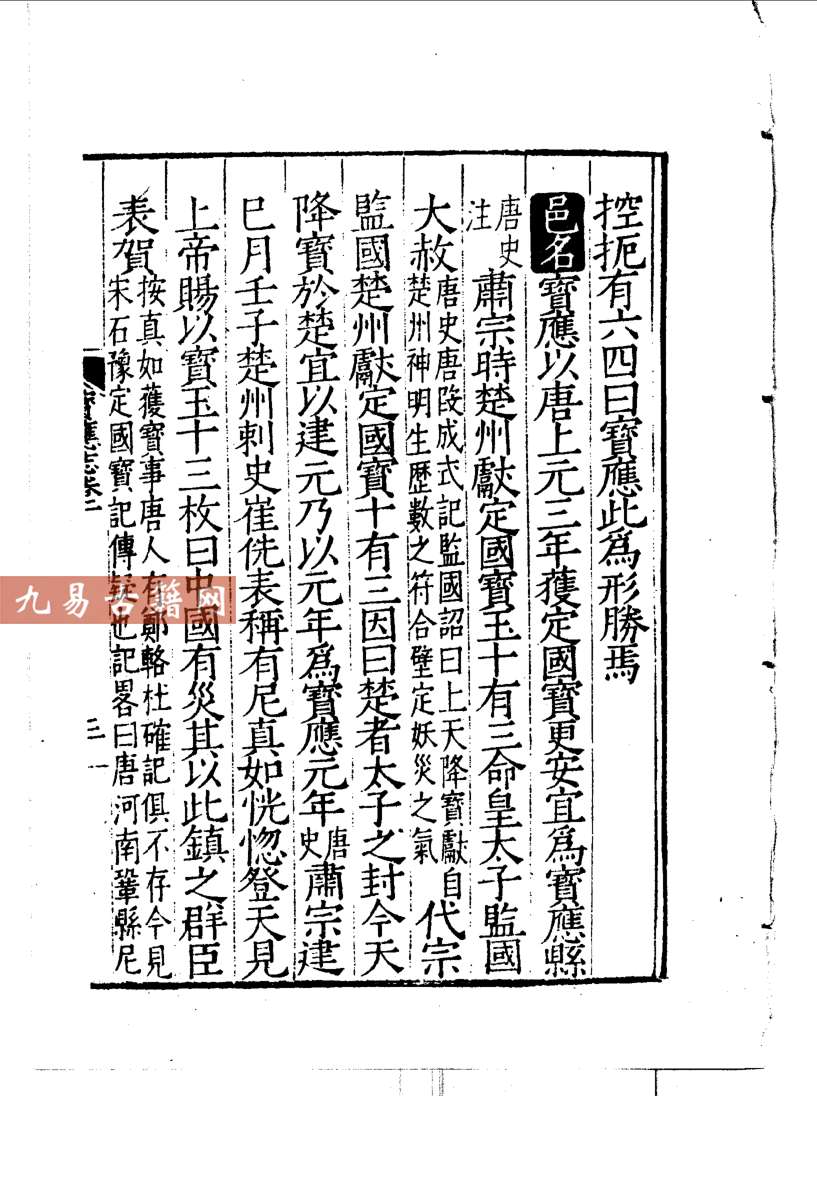 控扼有六四曰寶應此爲形勝焉
邑名寶應以唐上元三年獲定國寶更安宜爲寶應縣
唐史
注
肅宗時楚州獻定國寶玉十有三命皇太子監國
大赦
唐史唐段成式記監國詔曰上天降寶獻自
楚州神明生歷數之符合璧定妖災之氣
代宗
監國楚州獻定國寶十有三因曰楚者太子之封今天
降寶於楚宜以建元乃以元年爲寶應元年
唐
史
肅宗建
巳月壬子楚州刺史崔侁表稱有尼真如恍惚登天見
上帝賜以寶玉十三枚曰中國有災其以此鎮之群臣
表賀
按真如獲寶事唐人有鄭輅杜確記俱不存今見
宋石豫定國寶記傳疑也記畧曰唐河南鞏縣尼
寶應志卷二
三
九易古籍网